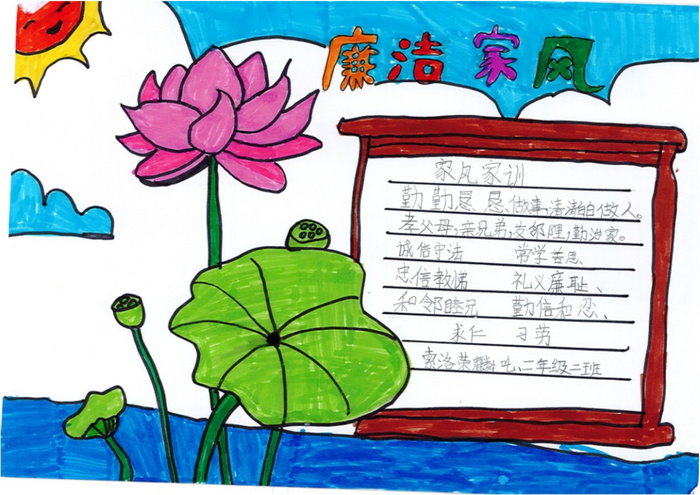 廉洁家风
家风家训
勤勤恳恳、做事,清清白白做人。
孝父母,亲兄弟,友邻里,勤治家。
诚信守法 常学善思
忠信教偶 礼义廉耻、
和邻睦兄 勤信和忍、
求仁 习劳
索洛荣麟 二年级二班